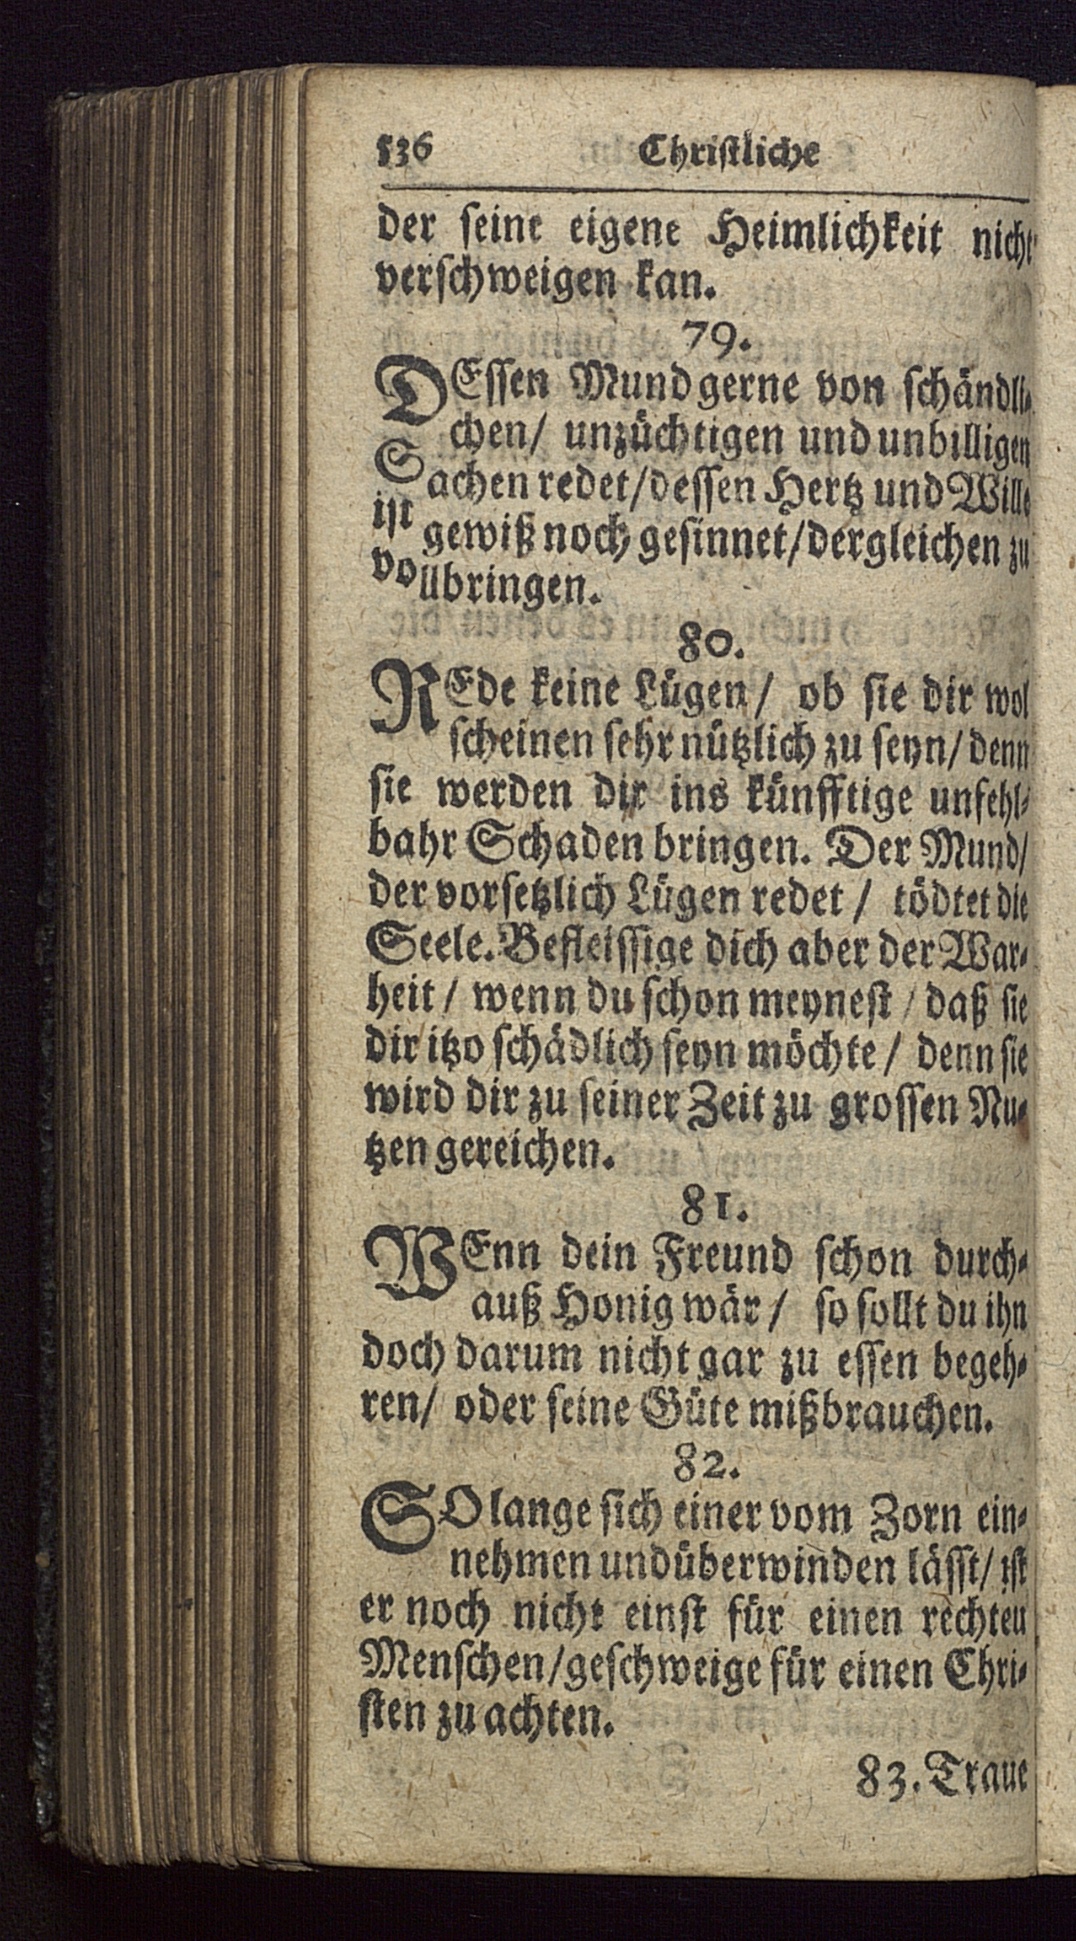 536 Christliche
der seine eigene Heimlichkeit nicht
verschweigen kan.
79.
DEssen Mund gerne von schändli-
chen/ unzüchtigen und unbilligen
Sachen redet/dessen Hertz und Wille
ist gewiß noch gesinnet/dergleichen zu
vollbringen.
80.
REde keine Lügen/ ob sie dir wol
scheinen sehr nützlich zu seyn/ denn
sie werden dir ins künfftige unfehl-
bahr Schaden bringen. Der Mund/
der vorsetzlich Lügen redet / tödtet die
Seele. Befleissige dich aber der War-
heit / wenn du schon meynest / daß sie
dir itzo schädlich seyn möchte / denn sie
wird dir zu seiner Zeit zu grossen Nu-
tzen gereichen.
81.
WEnn dein Freund schon durch-
auß Honig wär / so sollt du ihn
doch darum nicht gar zu essen begeh-
ren/ oder seine Güte mißbrauchen.
82.
SO lange sich einer vom Zorn ein-
nehmen und überwinden lässt/ ist
er noch nicht einst für einen rechten
Menschen/geschweige für einen Chri-
sten zu achten.
83. Traue